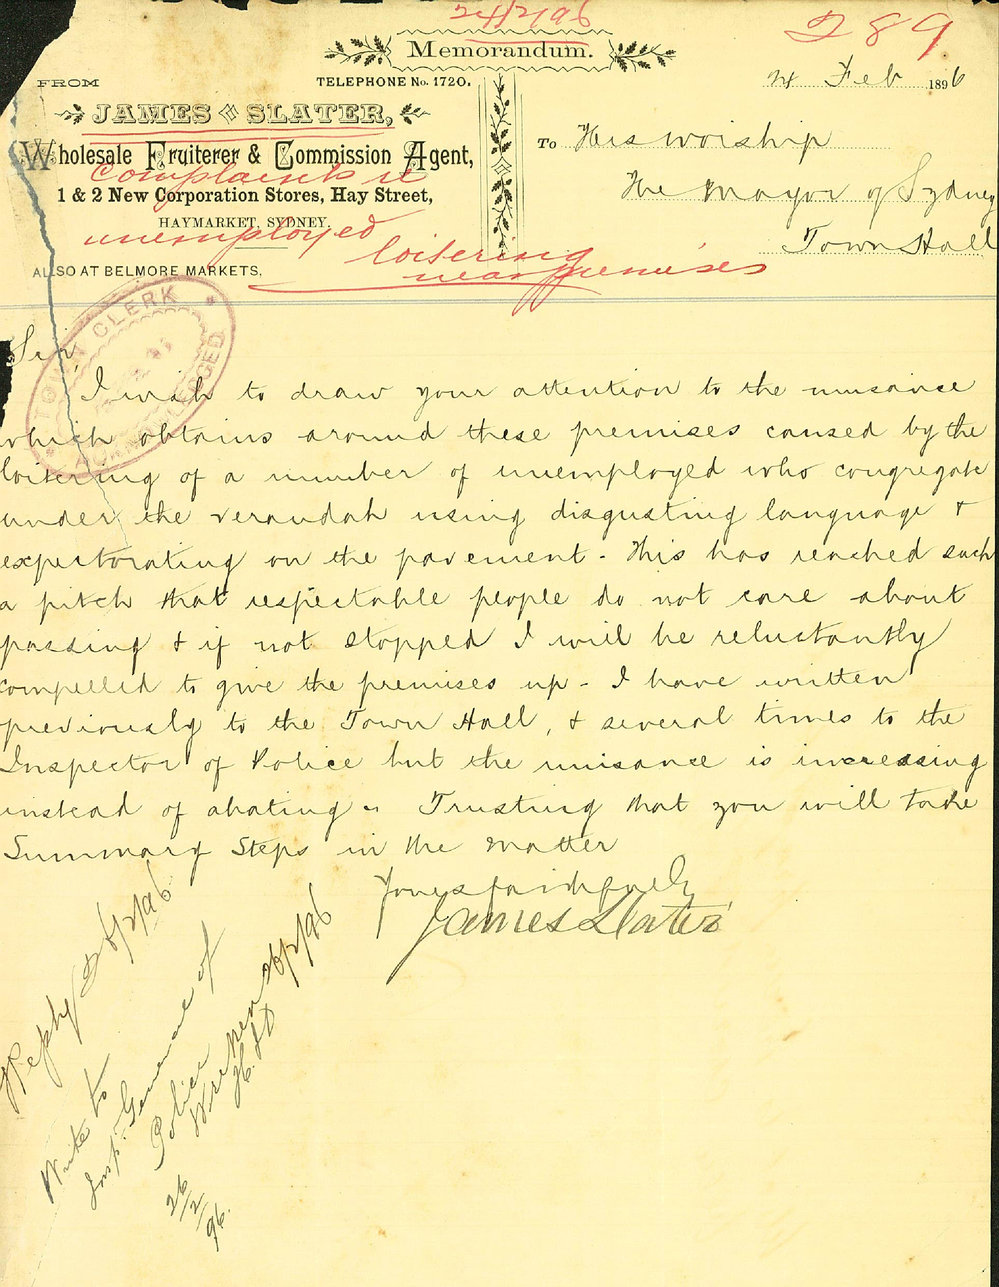 24/2/96
289
Memorandum.
FROM
TELEPHONE No. 1720.
24 Feb 1896
JAMES SLATER,
Wholesale Fruiterer & Commission Agent,
To His worship
complaints re
1 & 2 New Corporation Stores, Hay Street,
The Mayor of Sydney
HAYMARKET, SYDNEY.
unemployed
Town Hall
loitering
near premises
ALSO AT BELMORE MARKETS.
TOWN CLERK
ACKNOWLEDGED
Sir,
I wish to draw your attention to the nuisance
which obtains around these premises caused by the
loitering of a number of unemployed who congregate
under the verandah using disgusting language &
expectorating on the pavement - This has reached such
a pitch that respectable people do not care about
passing & if not stopped I will be reluctantly
compelled to give the premises up - I have written
previously to the Town Hall, & several times to the
Inspector of Police but the nuisance is increasing
instead of abating - Trusting that you will take
Summary Steps in the matter
Yours faithfully
James Slater
Reply 26/2/96
Write to
Insp. General of
Police
Written 26/2/96
26/2/96.